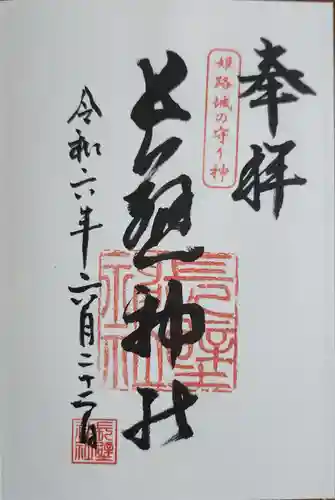 奉拝
姫路城の守り神
長壁神社
令和六年六月二十二日
長壁神社
長壁神社